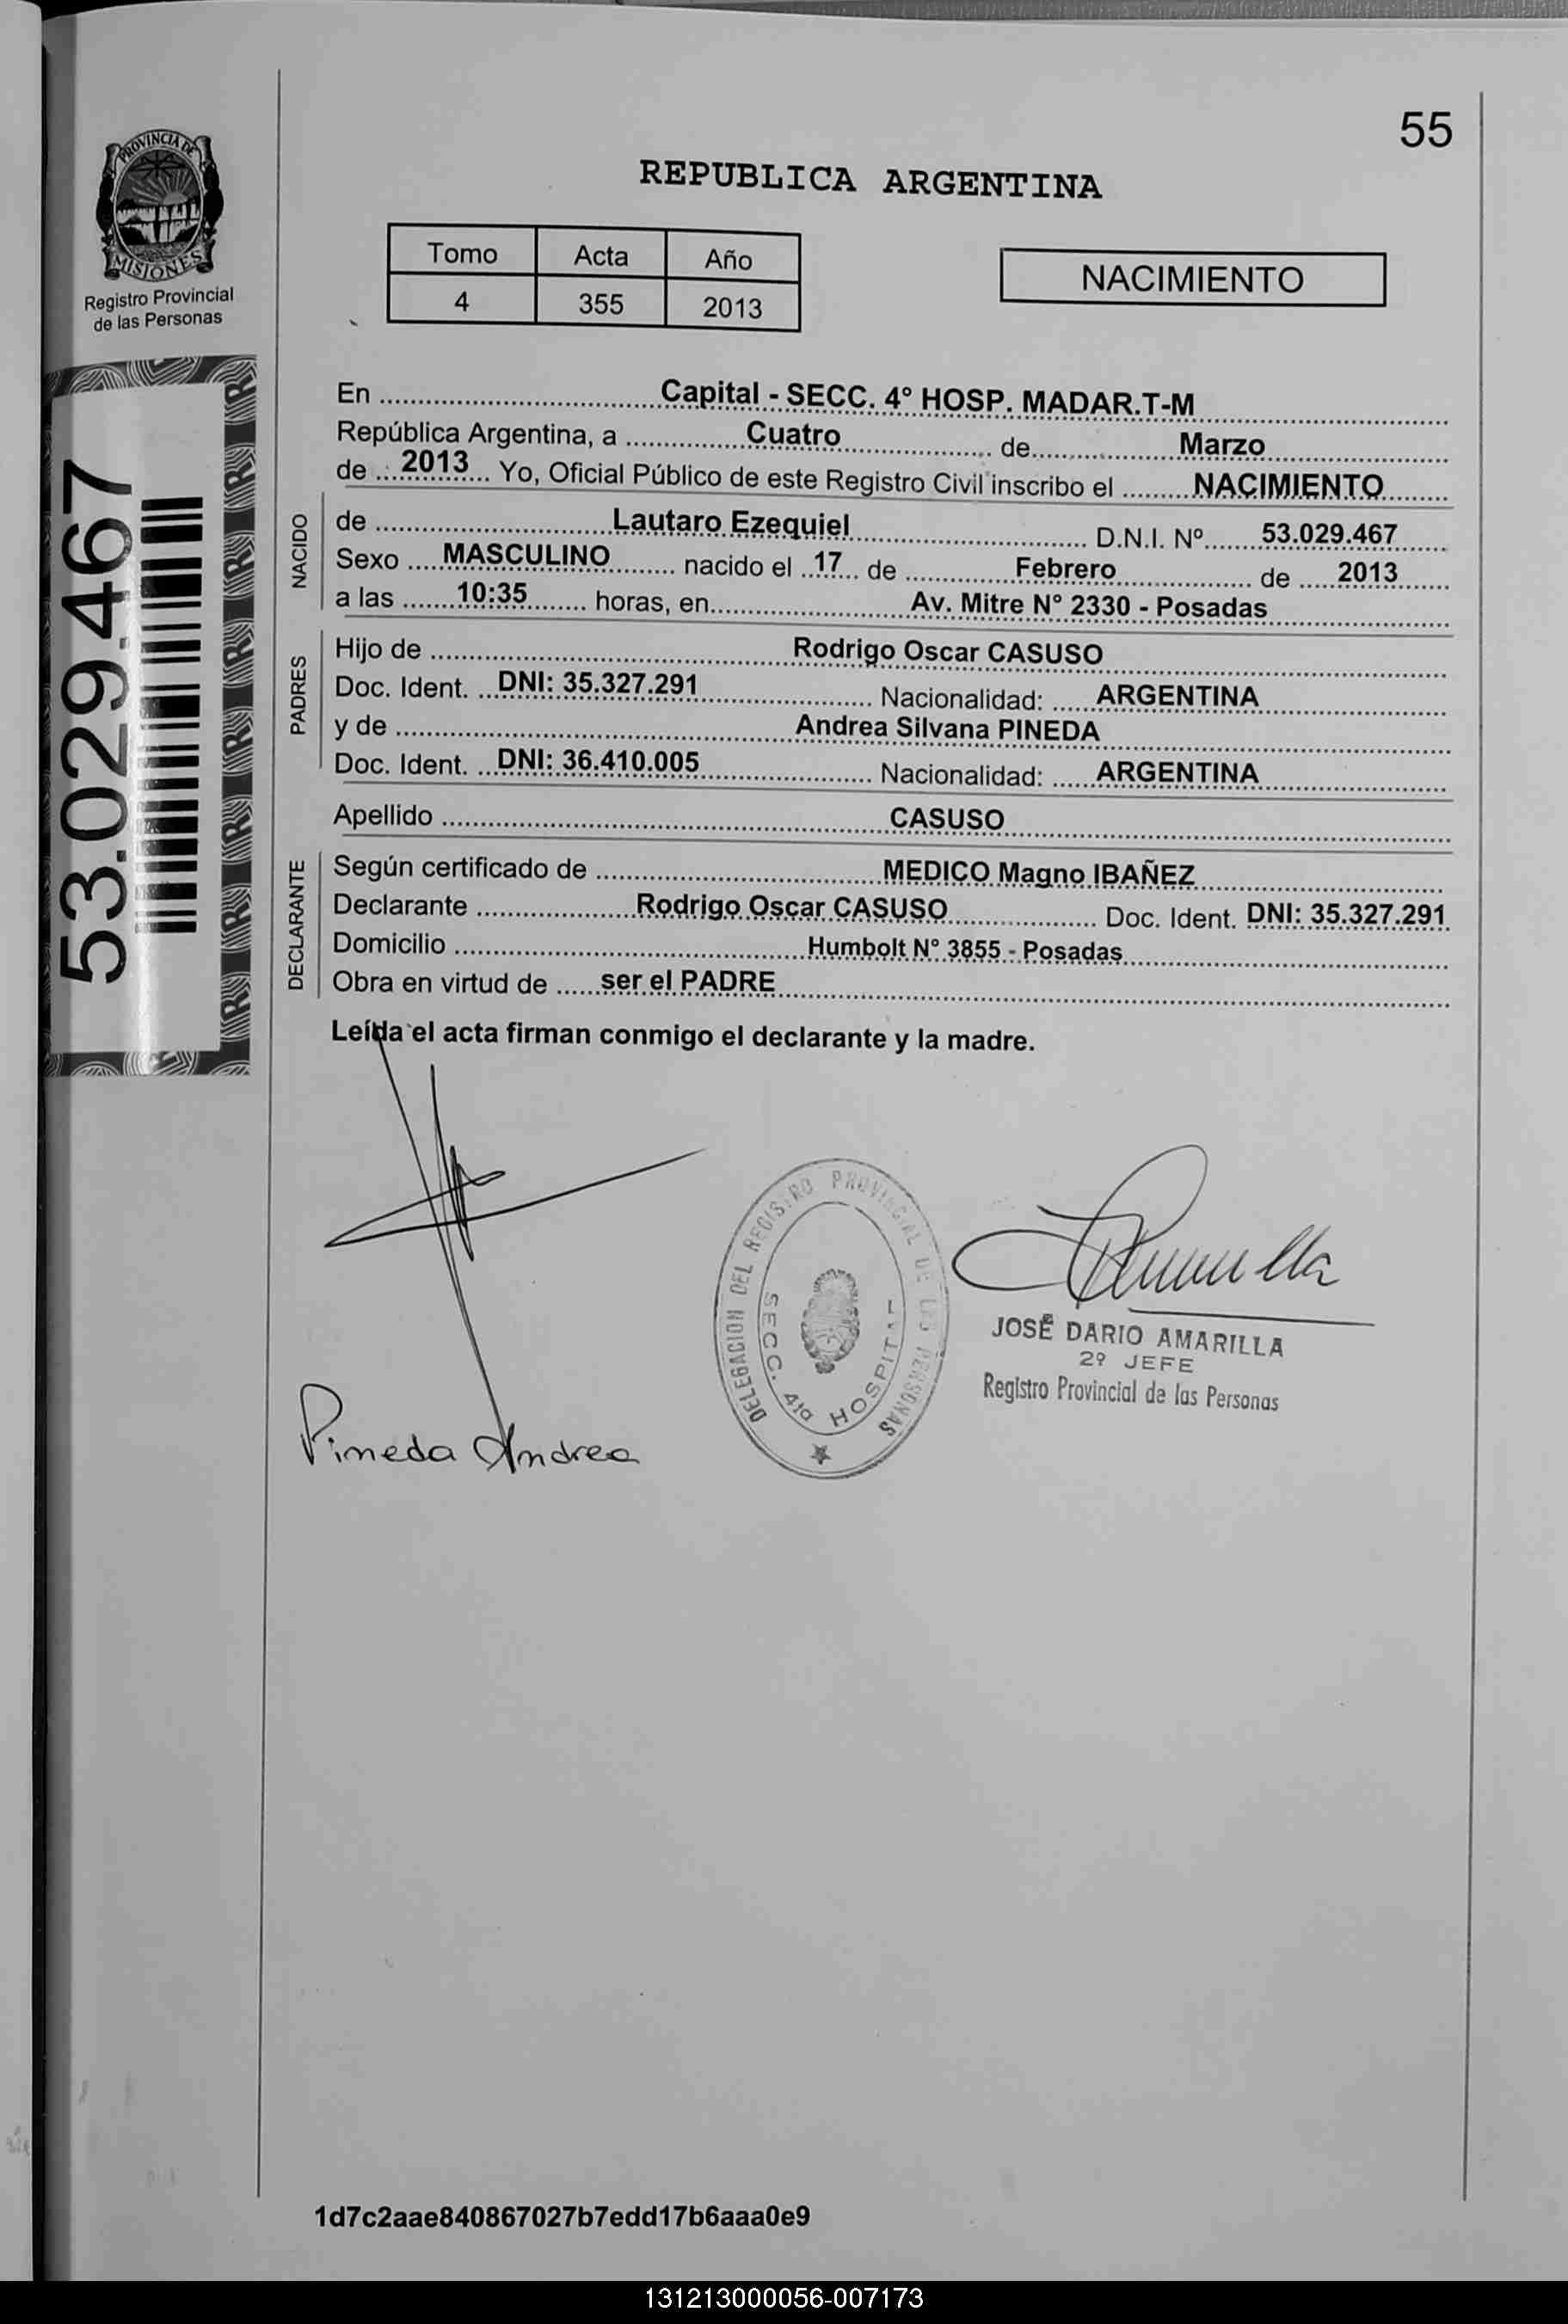 55
PROVINCIA DE
MISIONES
Registro Provincial
de las Personas
REPUBLICA ARGENTINA
Tomo Acta Año
4 355 2013
NACIMIENTO
53.029.467
En Capital - SECC. 4° HOSP. MADAR.T-M
República Argentina, a Cuatro de Marzo
de 2013 Yo, Oficial Público de este Registro Civil inscribo el NACIMIENTO
NACIDO
de Lautaro Ezequiel D.N.I. Nº 53.029.467
Sexo MASCULINO nacido el 17 de Febrero de 2013
a las 10:35 horas, en Av. Mitre N° 2330 - Posadas
PADRES
Hijo de Rodrigo Oscar CASUSO
Doc. Ident. DNI: 35.327.291 Nacionalidad: ARGENTINA
y de Andrea Silvana PINEDA
Doc. Ident. DNI: 36.410.005 Nacionalidad: ARGENTINA
Apellido CASUSO
DECLARANTE
Según certificado de MEDICO Magno IBAÑEZ
Declarante Rodrigo Oscar CASUSO Doc. Ident. DNI: 35.327.291
Domicilio Humbolt N° 3855 - Posadas
Obra en virtud de ser el PADRE
Leída el acta firman conmigo el declarante y la madre.
DELEGACION DEL REGISTRO PROVINCIAL DE LAS PERSONAS
SECC. 4ta HOSPITAL
JOSÉ DARIO AMARILLA
2º JEFE
Registro Provincial de las Personas
Pineda Andrea
1d7c2aae840867027b7edd17b6aaa0e9
131213000056-007173